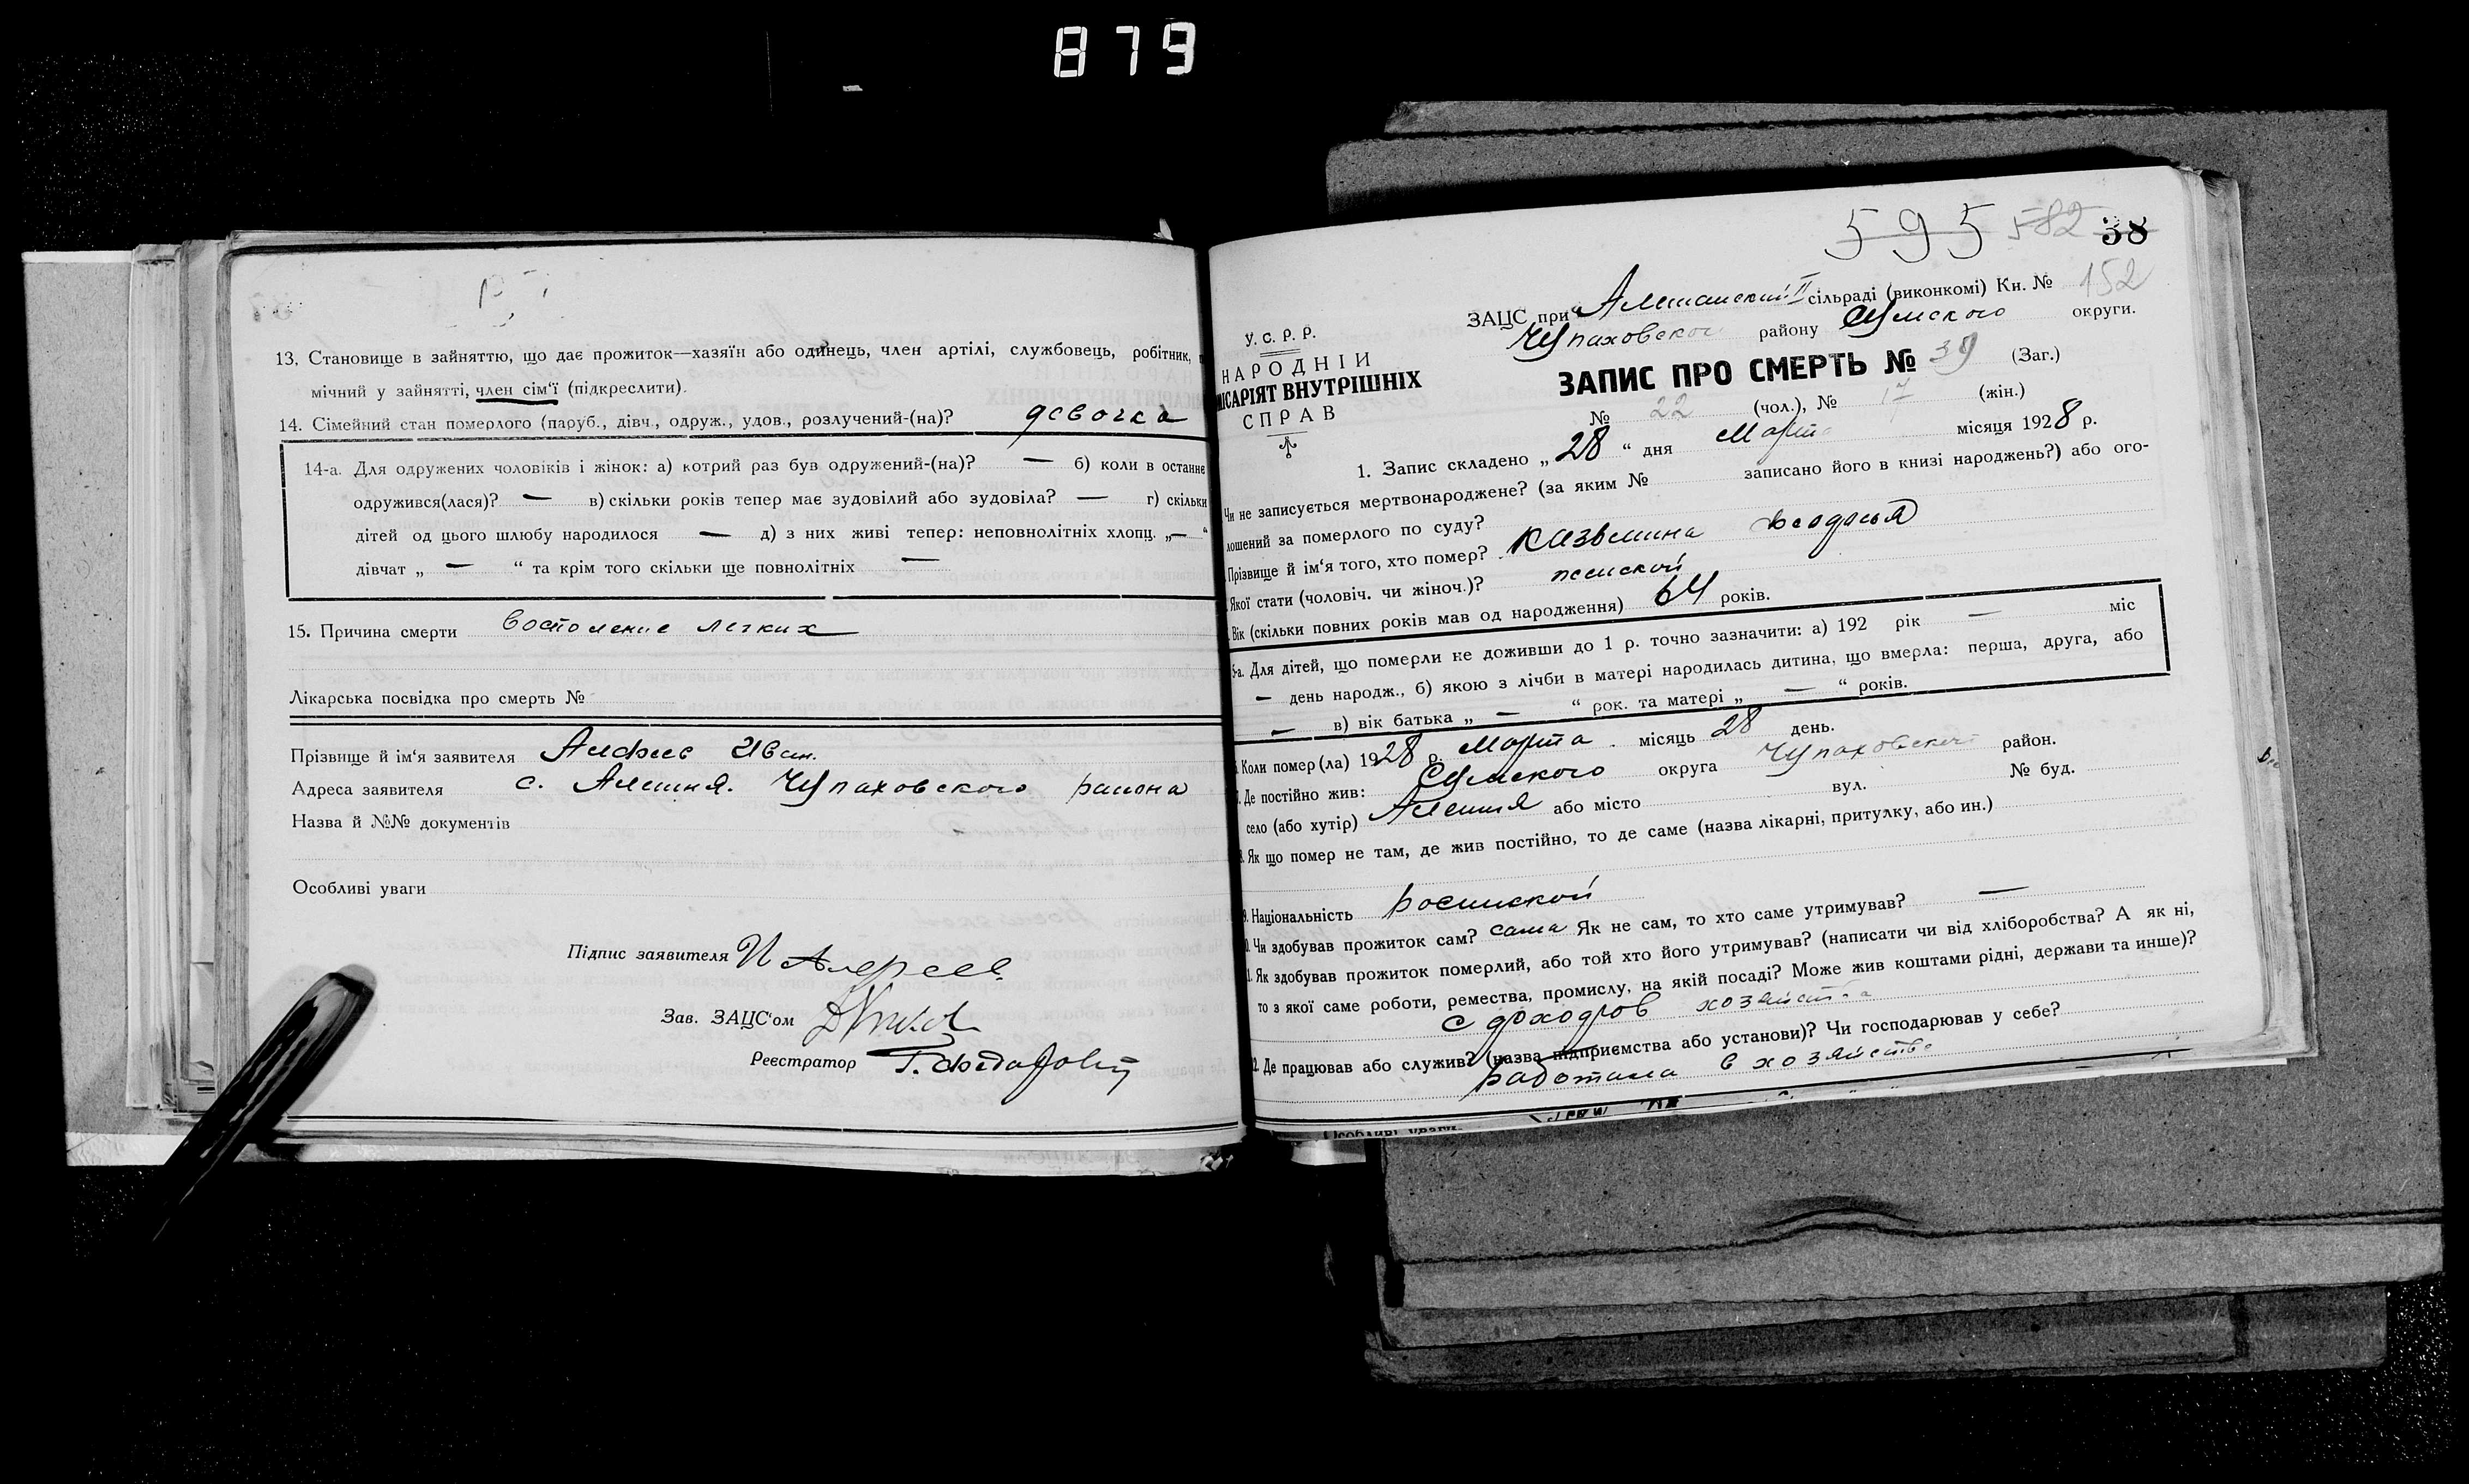 879
13. Становище в зайняттю, що дає прожиток—хазяїн або одинець, член артілі, службовець, робітник,
мічний у зайнятті, член сім'ї (підкреслити).
14. Сімейний стан померлого (паруб., дівч., одруж., удов., розлучений-(на)? девочка
14-а. Для одружених чоловіків і жінок: а) котрий раз був одружений-(на)? — б) коли в останнє
одружився(лася)? — в) скільки років тепер має зудовілий або зудовіла? — г) скільки
дітей од цього шлюбу народилося — д) з них живі тепер: неповнолітніх хлопц. „—“
дівчат „ — “ та крім того скільки ще повнолітніх —
15. Причина смерти восполение легких
Лікарська посвідка про смерть №
Прізвище й ім'я заявителя Иван.
Адреса заявителя с. Алешня. Чупаховского района
Назва й №№ документів
Особливі уваги
Підпис заявителя И
Зав. ЗАЦС'ом
Реєстратор Г.
595 582 38
ЗАЦС при Алешанский II сільраді (виконкомі) Кн. № 152
Чупаховског району Сумского округи.
У. С. Р. Р.
НАРОДНІЙ
ІСАРІЯТ ВНУТРІШНІХ
СПРАВ
ЗАПИС ПРО СМЕРТЬ № 39 (Заг.)
№ 22 (чол.), № 17 (жін.)
1. Запис складено „ 28 “ дня Марта місяця 1928 р.
Чи не записується мертвонароджене? (за яким № записано його в книзі народжень?) або ого-
лошений за померлого по суду?
Прізвище й ім'я того, хто помер? Казьмина Феодосья
Якої стати (чоловіч. чи жіноч.)? женской
Вік (скільки повних років мав од народження) 64 років.
5-а. Для дітей, що померли не доживши до 1 р. точно зазначити: а) 192 рік — міс
— день народж., б) якою з лічби в матері народилась дитина, що вмерла: перша, друга, або
— в) вік батька „ — “ рок. та матері „ — “ років.
Коли помер(ла) 1928 р. Марта місяць 28 день.
Де постійно жив: Сумского округа Чупаховског район.
село (або хутір) Алешня або місто вул. № буд.
Як що помер не там, де жив постійно, то де саме (назва лікарні, притулку, або ин.)
9. Національність
Чи здобував прожиток сам? сама Як не сам, то хто саме утримував? —
1. Як здобував прожиток померлий, або той хто його утримував? (написати чи від хліборобства? А як ні,
то з якої саме роботи, ремества, промислу, на якій посаді? Може жив коштами рідні, держави та инше)?
с доходов хозяйства
2. Де працював або служив? (назва підприємства або установи)? Чи господарював у себе?
работала в хозяйстве
Особливі уваги.